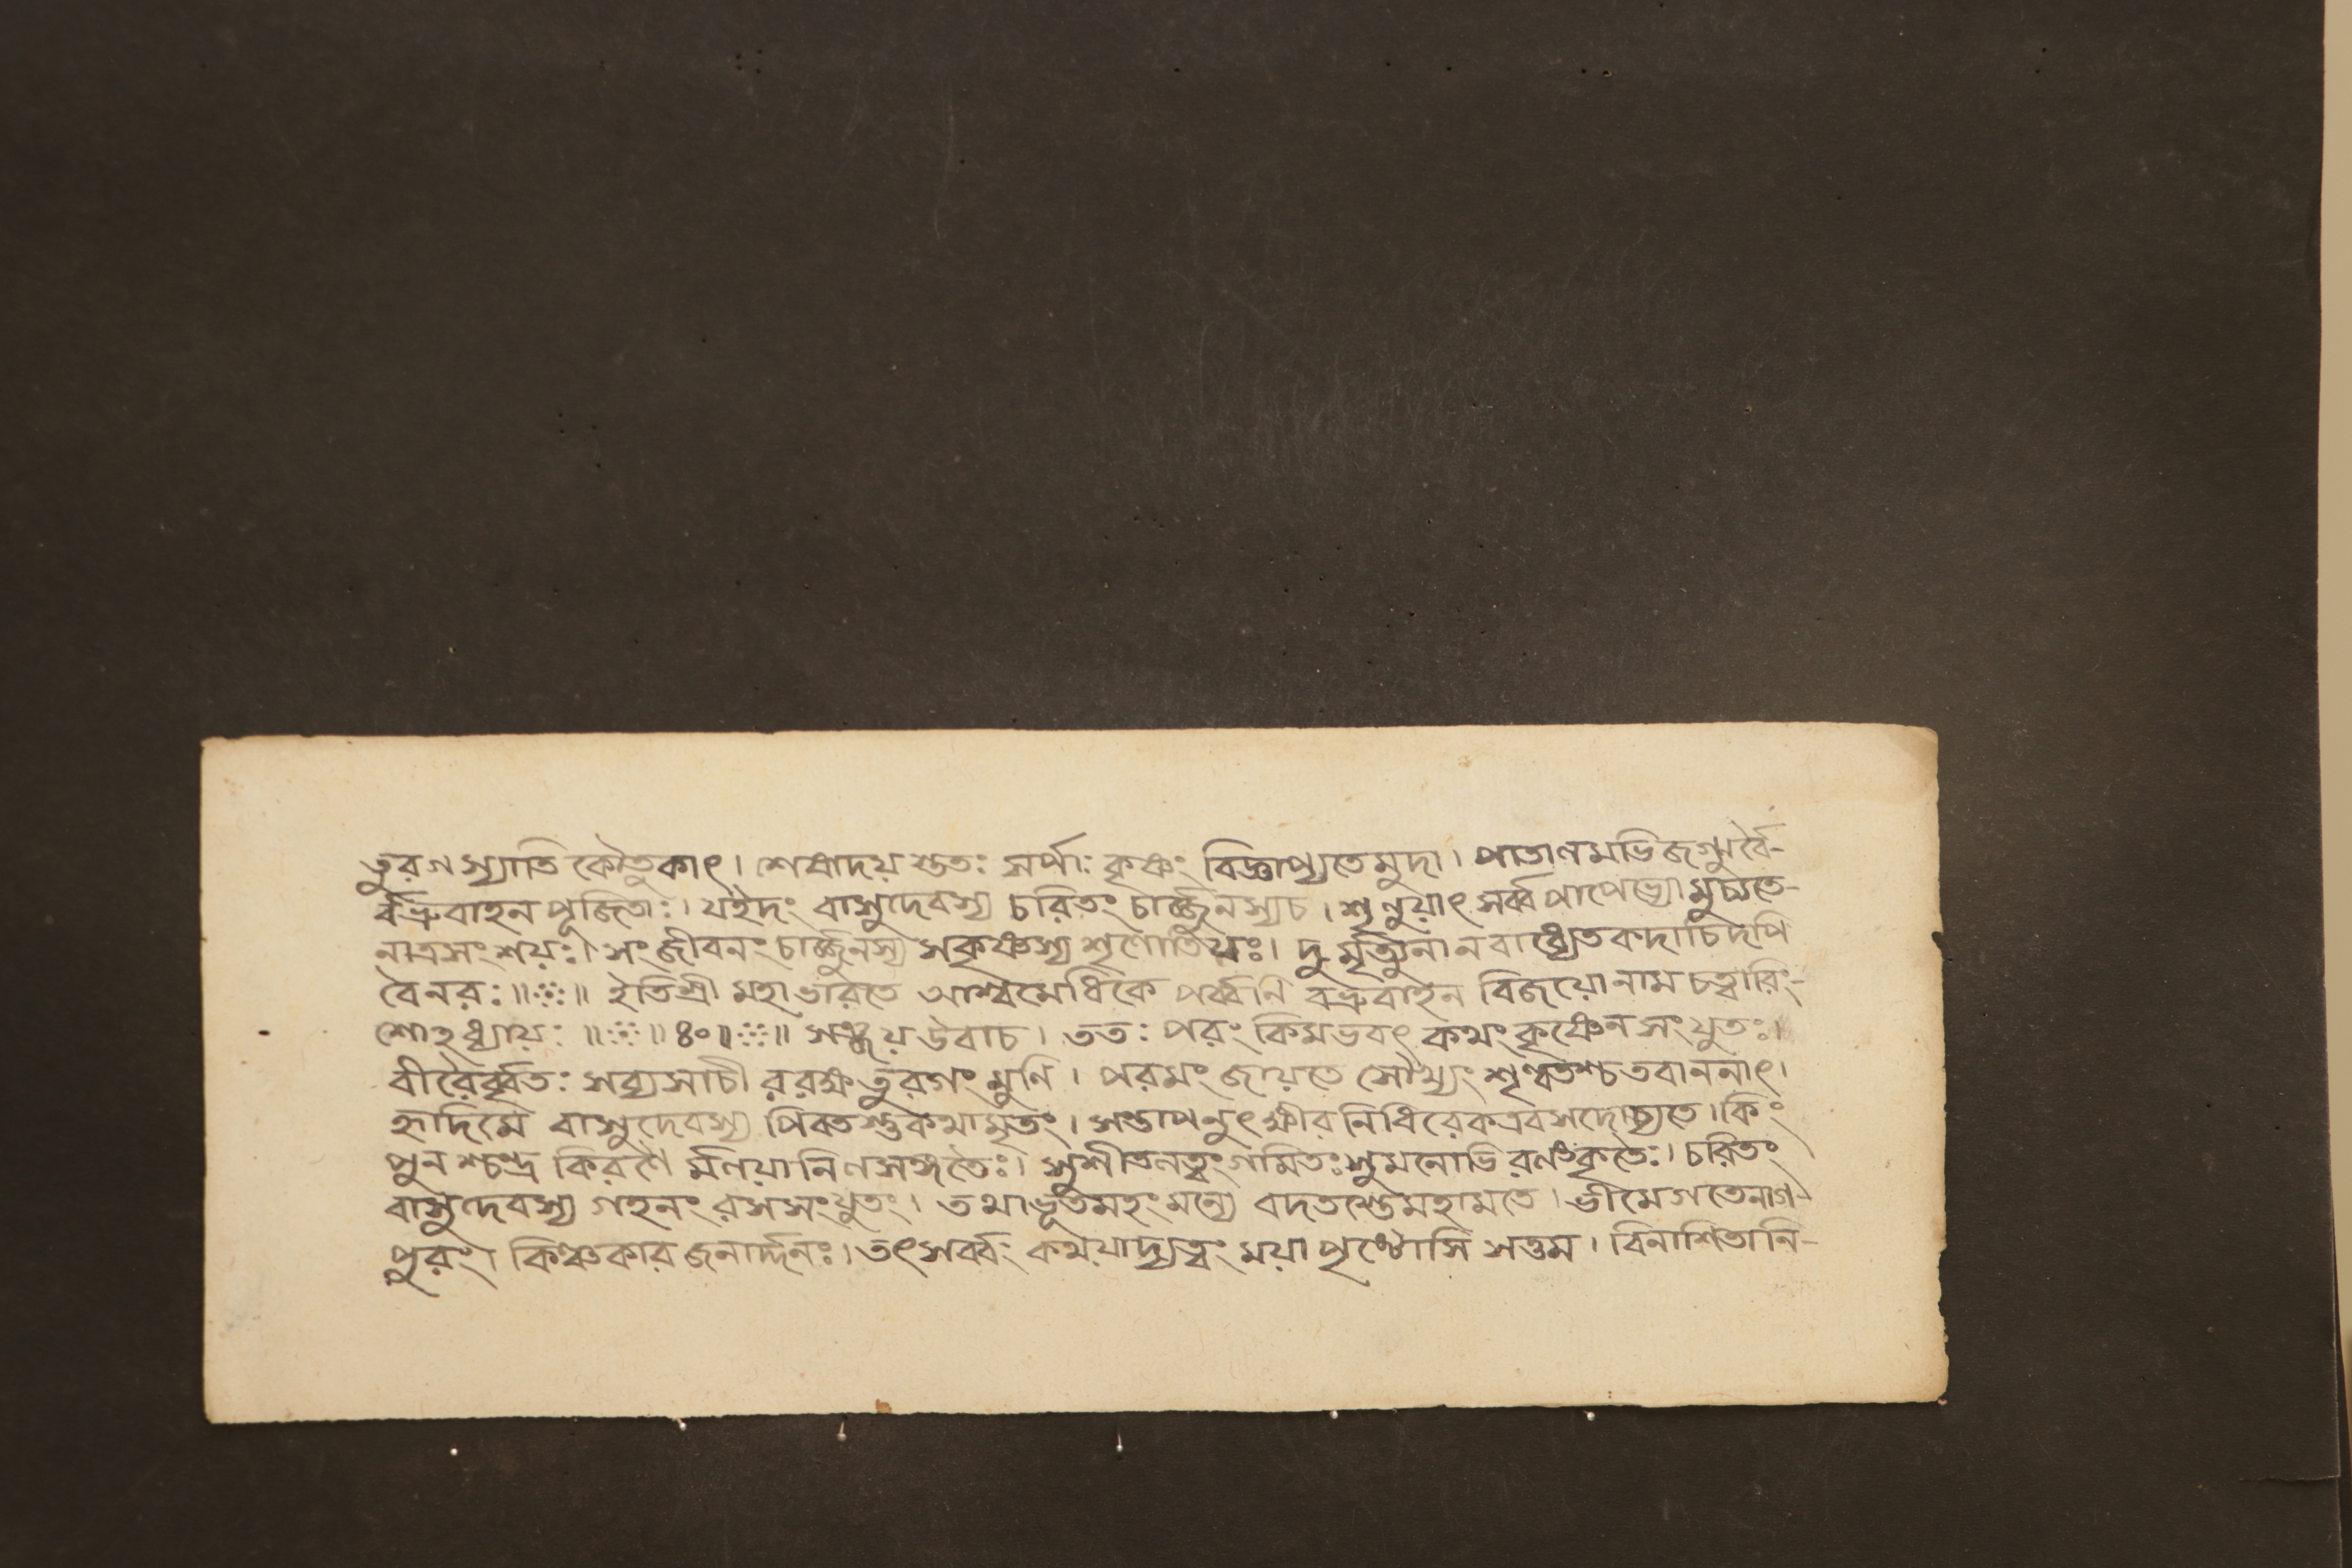 তুরগস্যাতি কৌতুকাৎ। শেষাদয়স্ততঃ সর্পাঃ কৃষ্ণং বিজ্ঞাপ্যতে মুদা। পাতালমভিজগ্মুর্বৈ-
বভ্রুবাহনপূজিতাঃ। যইদং বাসুদেবস্য চরিতং চার্জ্জুনস্যচ। শৃণুয়াৎ সর্ব্বপাপেভ্যো মুচ্যতে-
নাত্রসংশয়ঃ। সংজীবনং চার্জ্জুনস্য সকৃষ্ণস্য শৃণোতিযঃ। দুর্মৃত্যুনা ন বাধ্যেত কদাচিদপি
বৈনরঃ॥ ॥ ইতিশ্রী মহাভারতে আশ্বমেধিকে পর্ব্বনি বভ্রুবাহন বিজয়োনাম চত্বারিং-
শোঽধ্যায়ঃ ॥ ॥ ৪০॥ ॥ সঞ্জয় উবাচ। ততঃ পরং কিমভবৎ কথং কৃষ্ণেন সংযুতঃ।
বীরৈর্ব্বৃতঃ সব্যসাচী ররক্ষ তুরগং মুণি। পরমং জায়তে সৌখ্যং শৃণ্বতশ্চ তবাননাৎ।
হৃদিমে বাসুদেবস্য পিবতস্তুকথামৃতং। সন্তাপনুৎ ক্ষীরনিধিরেকএবসদোচ্যতে। কিং
পুনশ্চন্দ্র কিরণৈ র্মলয়ানিলসঙ্গতৈঃ। সুশীতলত্বং গমিতঃ সুমনোভিরলংকৃতৈঃ। চরিতং
বাসুদেবস্য গহনং রসসংযুতং। তথাভূতমহং মন্যে বদতস্তে মহামতে। ভীমে গতে নাগ-
পুরং। কিঞ্চকার জনার্দ্দনঃ। তৎসর্ব্বং কথয়াদ্যত্বং ময়া পৃষ্টোসি সত্তম। বিনাশিতানি-